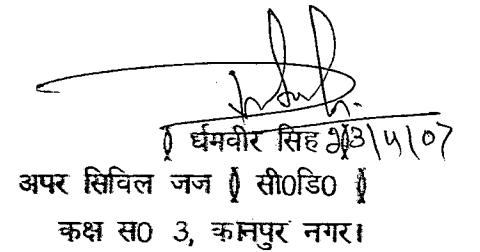 ( र्धमवीर सिह ) 23/4/07
अपर सिविल जज ( सी0डि0 )
कक्ष स0 3, कानपुर नगर।